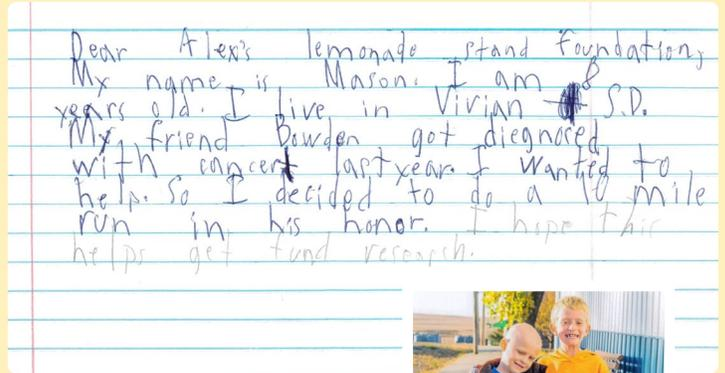 Dear Alex's lemonade stand foundation,
My name is Mason. I am 8
years old. I live in Vivian S.D.
My friend Bowden got diegnosed
with cancer last year. I wanted to
help. So I decided to do a 10 mile
run in his honor. I hope this
helps get fund research.